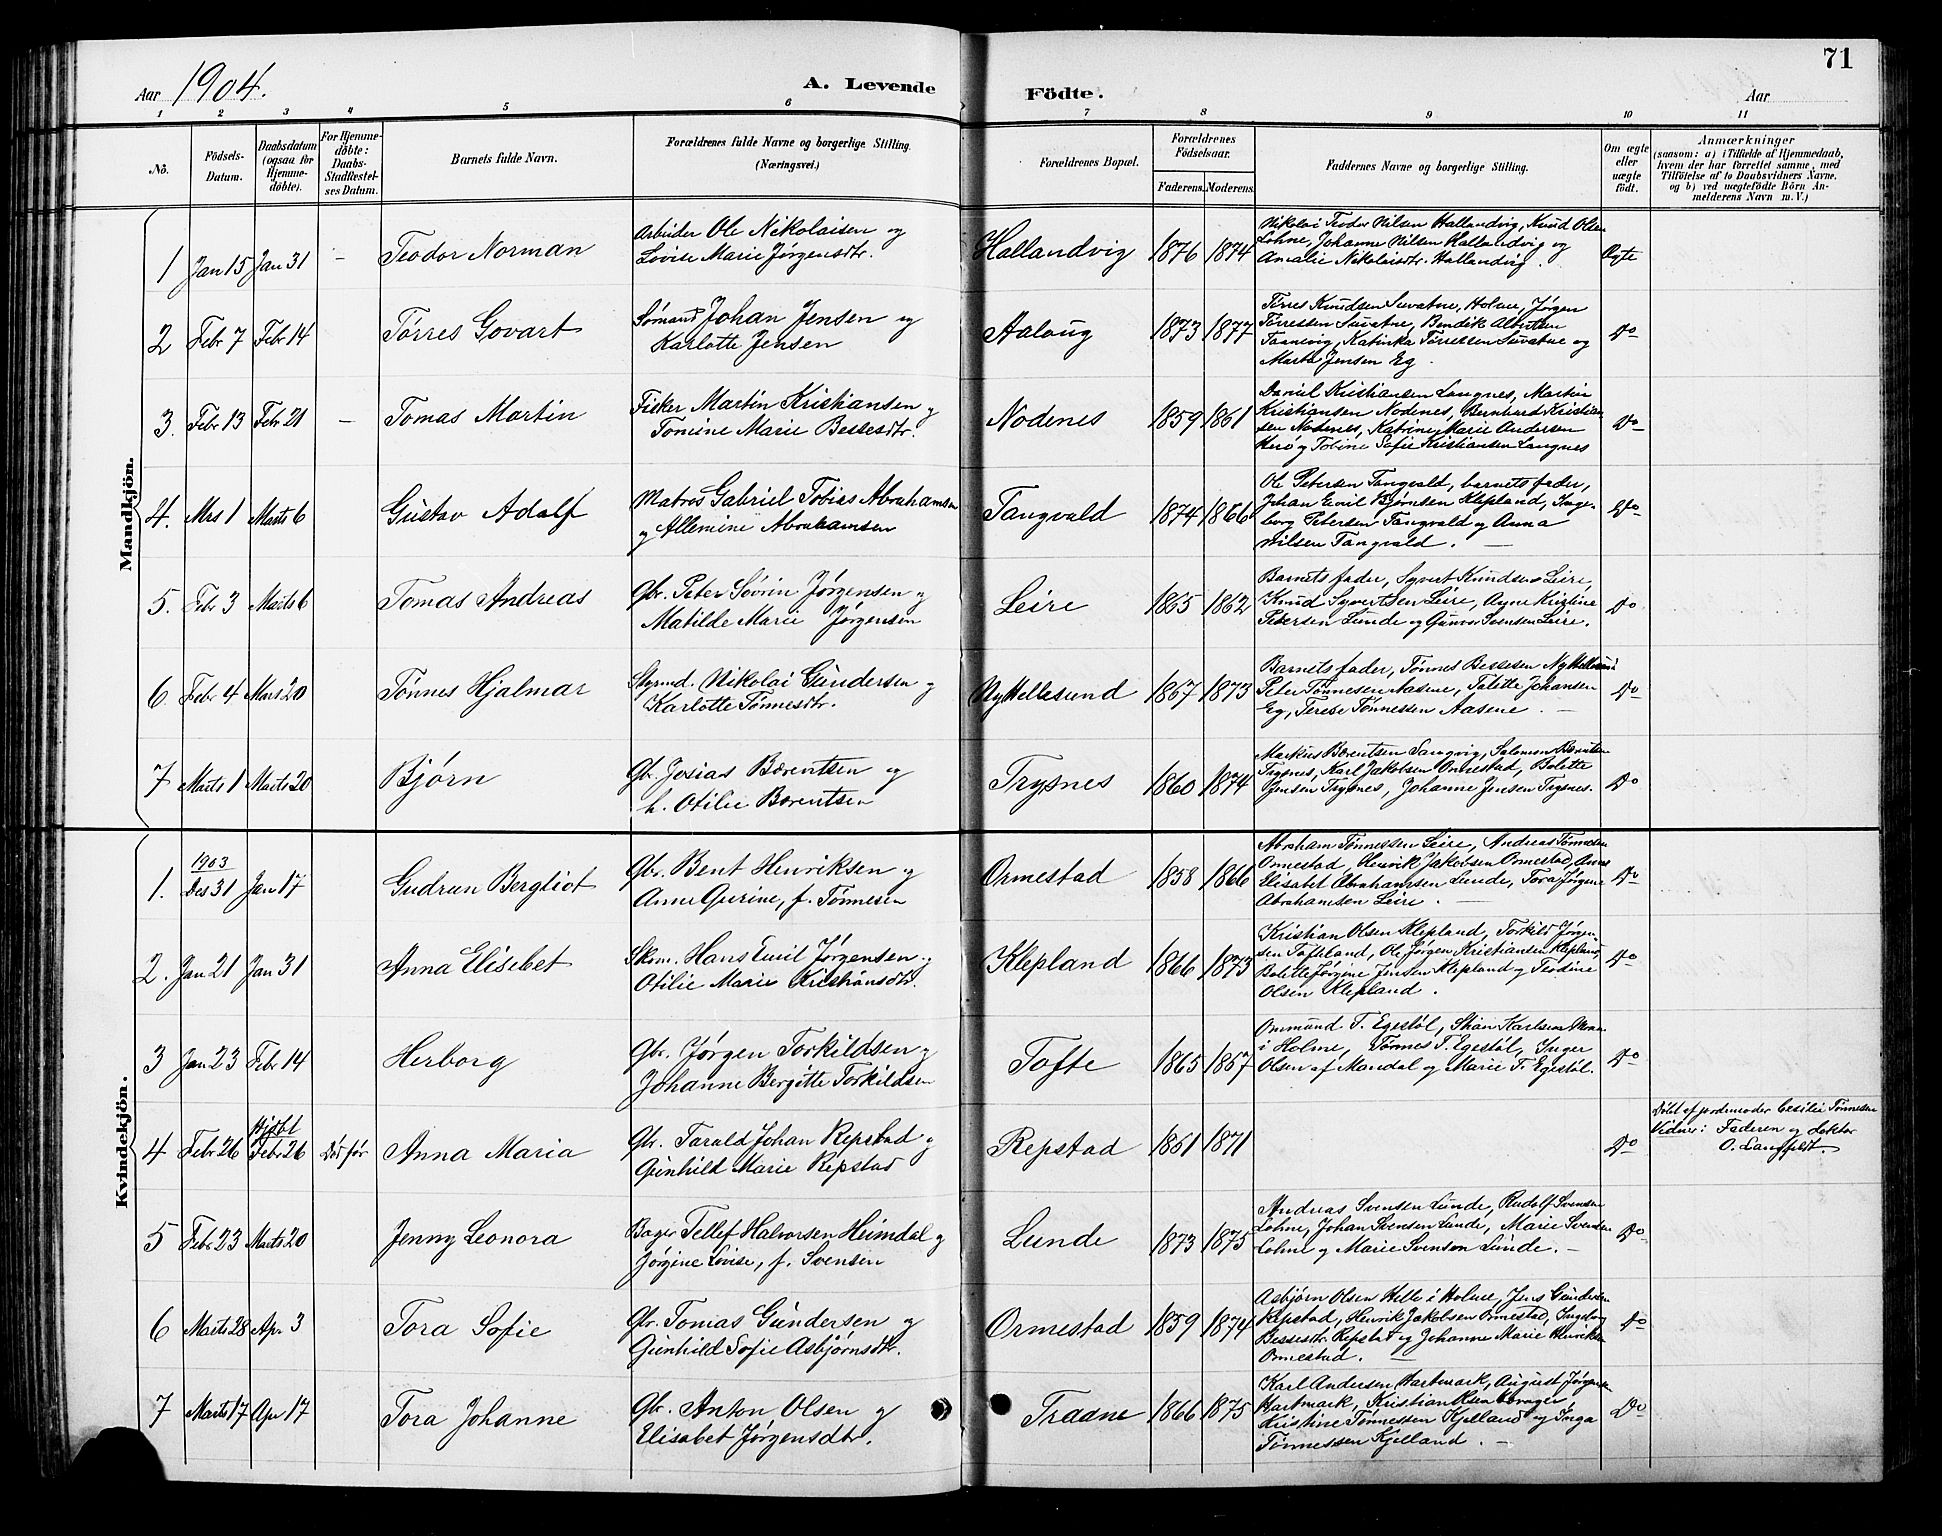 71
Aar 1904.
A. Levende Födte.
Aar
1 2 3 4 5 6 7 8 9 10 11
No.
Födsels-Datum.
Daabsdatum (ogsaa for Hjemme-döbte).
For Hjemme-döbte: Daabs-Stadfestel-ses Datum.
Barnets fulde Navn.
Forældrenes fulde Navne og borgerlige Stilling. (Næringsvei.)
Forældrenes Bopæl.
Forældrenes Födselsaar.
Faderens. Moderens.
Faddernes Navne og borgerlige Stilling.
Om ægte eller uægte födt.
Anmærkninger
(saasom: a) i Tilfælde af Hjemmedaab,
hvem der har forrettet samme, med
Tilföielse af to Daabsvidners Navne,
og b) ved uægtefödte Börn An-
melderens Navn m. V.)
Mandkjön.
1 Jan 15 Jan 31 – Teodor Norman
Arbeider Ole Nikolaisen og
Lovise Marie Jørgensdtr.
Hallandvig 1876 1874
Nikolai Teodor Nilsen Hallandvig, Knud Olsen
Lohne, Johanne Nilsen Hallandvig og
Amalie Nikolaisdtr. Hallandvig.
Ægte
2 Febr 7 Febr 14 Tørres Govart
Sømand Johan Jensen og
Karlotte Jensen
Aaloug 1873 1877
Tørres Knudsen Suvatne, Holme, Jørgen
Tørressen Suvatne, Bendik Albertsen
Tannevig, Katinka Tørressen Suvatne og
Marta Jensen Eg.
Do
3. Febr 13 Febr 21 – Tomas Martin
Fisker Martin Kristiansen og
Tomine Marie Bessesdtr.
Nodenes 1859 1861
Daniel Kristiansen Langnes, Martin
Kristiansen Nodenes, Bernhard Kristian-
sen Nodenes, Katrine Marie Andersen
Herø og Tobine Sofie Kristiansen Langnes
Do
4. Mrs 1 Marts 6 Gustav Adolf
Matros Gabriel Tobias Abrahamsen
og Allemine Abrahamsen
Tangvald 1874 1866
Ole Petersen Tangvald, barnets fader,
Johan Emil Bjørnsen Klepland, Inge-
borg Petersen Tangvald og Anna
Nilsen Tangvald. –
Do
5. Febr 3 Marts 6 Tomas Andreas
Gbr. Peter Søvrin Jørgensen og
Matilde Marie Jørgensen
Leire 1865 1862
Barnets fader, Syvert Knudsen Leire,
Knud Syvertsen Leire, Anne Kristine
Petersen Lunde og Gunvor Svensen Leire.
Do
6. Febr 4 Mars 20 Tønnes Hjalmar
Styrmd. Nikolai Gundersen og
Karlotte Tønnesdtr.
Ny Hellesund 1867 1873
Barnets fader, Tønnes Bessesen Ny Hellesund
Peter Tønnesen Aasene, Talette Johansen
Eg, Terese Tønnessen Aasene. –
Do
7 Marts 1 Marts 20 Bjørn
Gbr. Josias Bærentsen og
h. Otilie Barentsen
Trysnes 1860 1874
Markus Bærentsen Langvig, Salomon Bærentsen
Trysnes, Karl Jakobsen Ormestad, Bolette
Jensen Trysnes, Johanne Jensen Trysnes.
Do
Kvindekjön.
1. 1903 Des 31 Jan 17 Gudrun Bergliot
Gbr. Bent Henriksen og
Anne Gurine, f. Tønnesen
Ormestad 1858 1866
Abraham Tønnessen Leire, Andreas Tønnesen
Ormestad, Henrik Jakobsen Ormestad, Anne
Elisabet Abrahamsen Lunde, Tora Jørgine
Abrahamsen Leire. –
Do
2. Jan 21 Jan 31 Anna Elisebet
Skom. Hans Emil Jørgensen og
Otilie Marie Kristiansdtr.
Klepland 1866 1873
Kristian Olsen Klepland, Torkild Jørgen-
sen Toftland, Ole Jørgen Kristiansen Klepland,
Bolette Jørgine Jensen Klepland og Teodine
Olsen Klepland.
Do
3 Jan 23 Febr 14 Herborg
Gbr. Jørgen Torkildsen og
Johanne Bergitte Torkildsen
Tofte 1865 1867
Ommund T. Egestøl,
i Holme, Tønnes T. Egestøl, Inger
Olsen af Mandal og Marie T. Egestøl.
Do
4 Febr 26 hjdbt Febr 26 Død før Anna Maria
Gbr. Tarald Johan Repstad og
Gunhild Marie Repstad
Repstad 1861 1871
Do
Døbt af jordemoder Cesilie Tønnesen
Vidner: Faderen og doktor
O. Langfeldt.
5 Febr 23 Marts 20 Jenny Leonora
Bager Tellef Halvorsen Heimdal og
Jørgine Lovise, f. Svensen
Lunde 1873 1875
Andreas Svensen Lunde, Rudolf Svensen
Lohne, Johan Svensen Lunde, Marie Svensen
Lohne og Marie Svensen Lunde. –
Do
6 Marts 28 Apr 3 Tora Sofie
Gbr. Tomas Gundersen og
Gunhild Sofie Asbjørnsdtr.
Ormestad 1859 1874
Asbjørn Olsen Helle i Holme, Jens Gundersen
Repstad, Henrik Jakobsen Ormestad, Ingeborg
Bessesdtr. Repstad og Johanne Marie Henriksen
Ormestad. –
Do
7 Marts 17 Apr 17 Tora Johanne
Gbr. Anton Olsen og
Elisabet Jørgensdtr.
Traane 1866 1875
Karl Andersen Hartmark, August Jørgensen
Hartmark, Kristian Olsen
Kristine Tønnessen Kjelland og Inga
Tønnessen Kjelland. –
Do